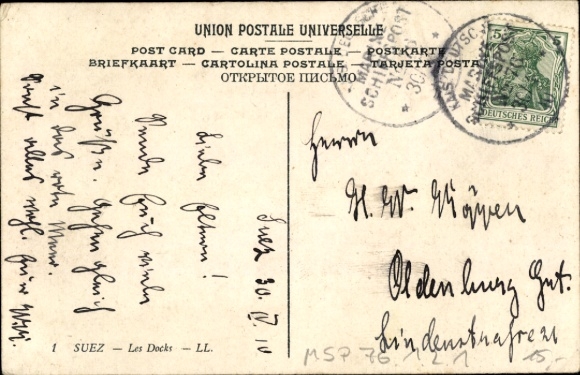 UNION POSTALE UNIVERSELLE
POST CARD – CARTE POSTALE – POSTKARTE
BRIEFKAART – CARTOLINA POSTALE – TARJETA POSTA
ОТКРЫТОЕ ПИСЬМО
5
5
DEUTSCHES REICH
MARINE
SCHIFFSPOST
30
KAIS. DEUTSCHE
MARINE
SCHIFFSPOST
Suez 30. IV. 10
Liebe Eltern!
Sende Euch viele
Grüße. Gehen gleich
in das rote Meer.
Sonst alles wohl. Euer
Herrn
H. W. Köppen
Oldenburg Gr.
Lindenstrasse
1 SUEZ – Les Docks – LL.
MSP 76 1 2 1
15,-